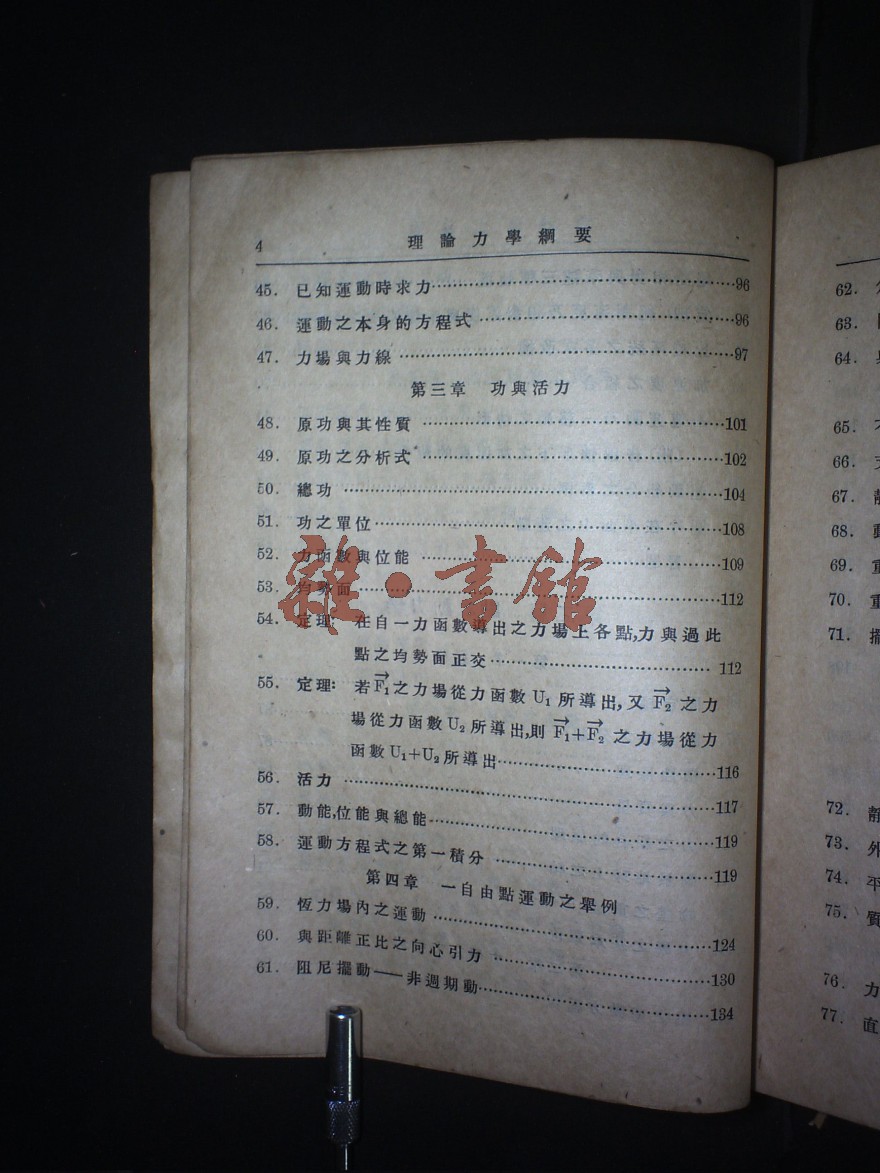 4 理論力學綱要
45. 已知運動時求力……96
46. 運動之本身的方程式……96
47. 力場與力線……97
第三章 功與活力
48. 原功與其性質……101
49. 原功之分析式……102
50. 總功……104
51. 功之單位……108
52. 力函數與位能……109
53. 均勢面……112
54. 定理: 在自一力函數導出之力場上各點,力與過此
點之均勢面正交……112
55. 定理: 若F₁之力場從力函數U₁所導出,又F₂之力
場從力函數U₂所導出,則F₁+F₂之力場從力
函數U₁+U₂所導出……116
56. 活力……117
57. 動能,位能與總能……119
58. 運動方程式之第一積分……119
第四章 一自由點運動之舉例
59. 恆力場內之運動……124
60. 與距離正比之向心引力……130
61. 阻尼擺動——非週期動……134
雜·書館
62.
63.
64.
65.
66.
67.
68.
69. 重
70. 重
71. 擺
72. 靜
73. 外
74. 平
75. 質
76. 力
77. 直